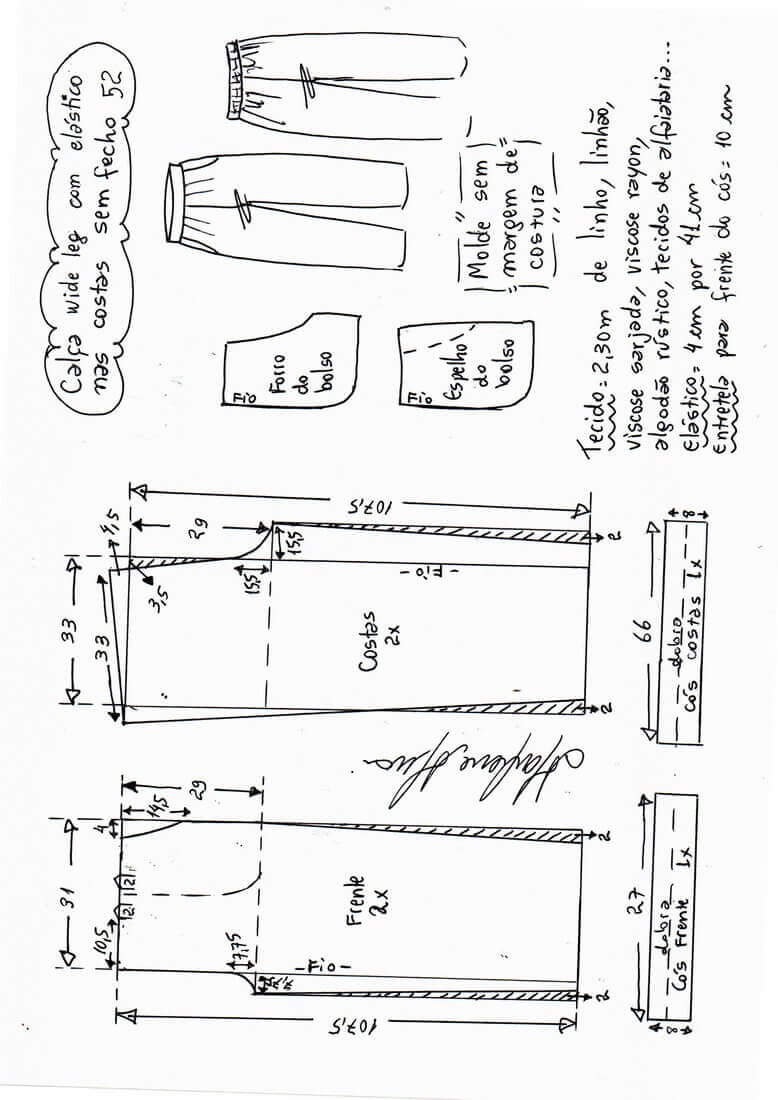 Calça wide leg com elástico
nas costas sem fecho 52
Molde sem
margem de
costura
Forro
do
bolso
Fio
Espelho
do
bolso
Fio
Tecido = 2,30m de linho, linhão,
viscose sarjada, viscose rayon,
algodão rústico, tecidos de alfaiataria...
elástico = 4 cm por 41 cm
Entretela para frente do cós = 10 cm
107,5
29
4,5
3,5
33
33
15,5
15,5
- Fio -
Costas
2x
2
2
66
8
dobra
cós costas 1x
Marlene Mukai
107,5
29
14,5
4
31
|2| |2|
10,5
7,75
- Fio -
Frente
2x
2
2
27
8
dobra
Cós Frente 1x